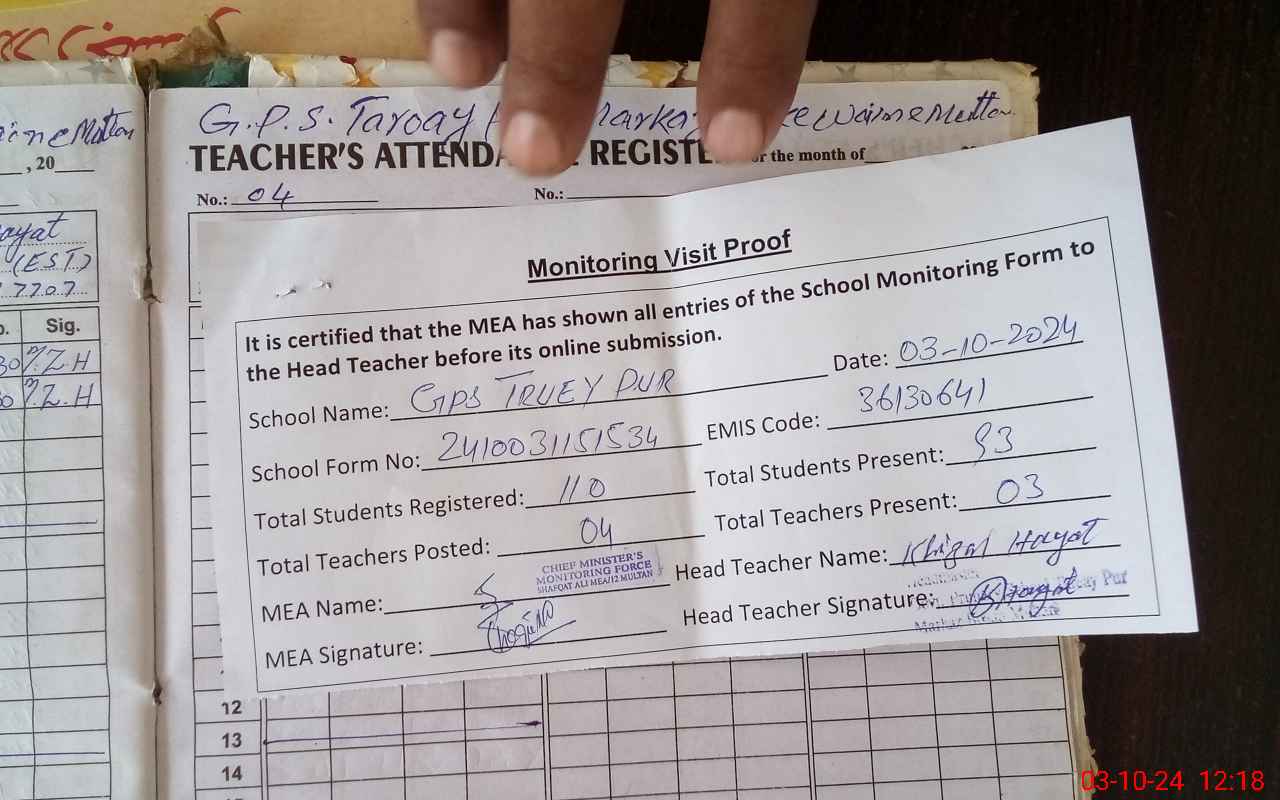 G.P.S. Taroay
TEACHER'S ATTENDA REGISTE
for the month of
No.: 04
No.:
, 20
(EST)
7707
Sig.
M.Z.H
M.Z.H
Monitoring Visit Proof
It is certified that the MEA has shown all entries of the School Monitoring Form to
the Head Teacher before its online submission.
School Name: GPS TRUEY PUR Date: 03-10-2024
School Form No: 2410031151534 EMIS Code: 36130641
Total Students Registered: 110 Total Students Present: 93
Total Teachers Posted: 04 Total Teachers Present: 03
CHIEF MINISTER'S
MONITORING FORCE
SHAFQAT ALI MEA/12 MULTAN
MEA Name: Head Teacher Name: Khizal Hayat
MEA Signature: Head Teacher Signature:
12
13
14
03-10-24 12:18